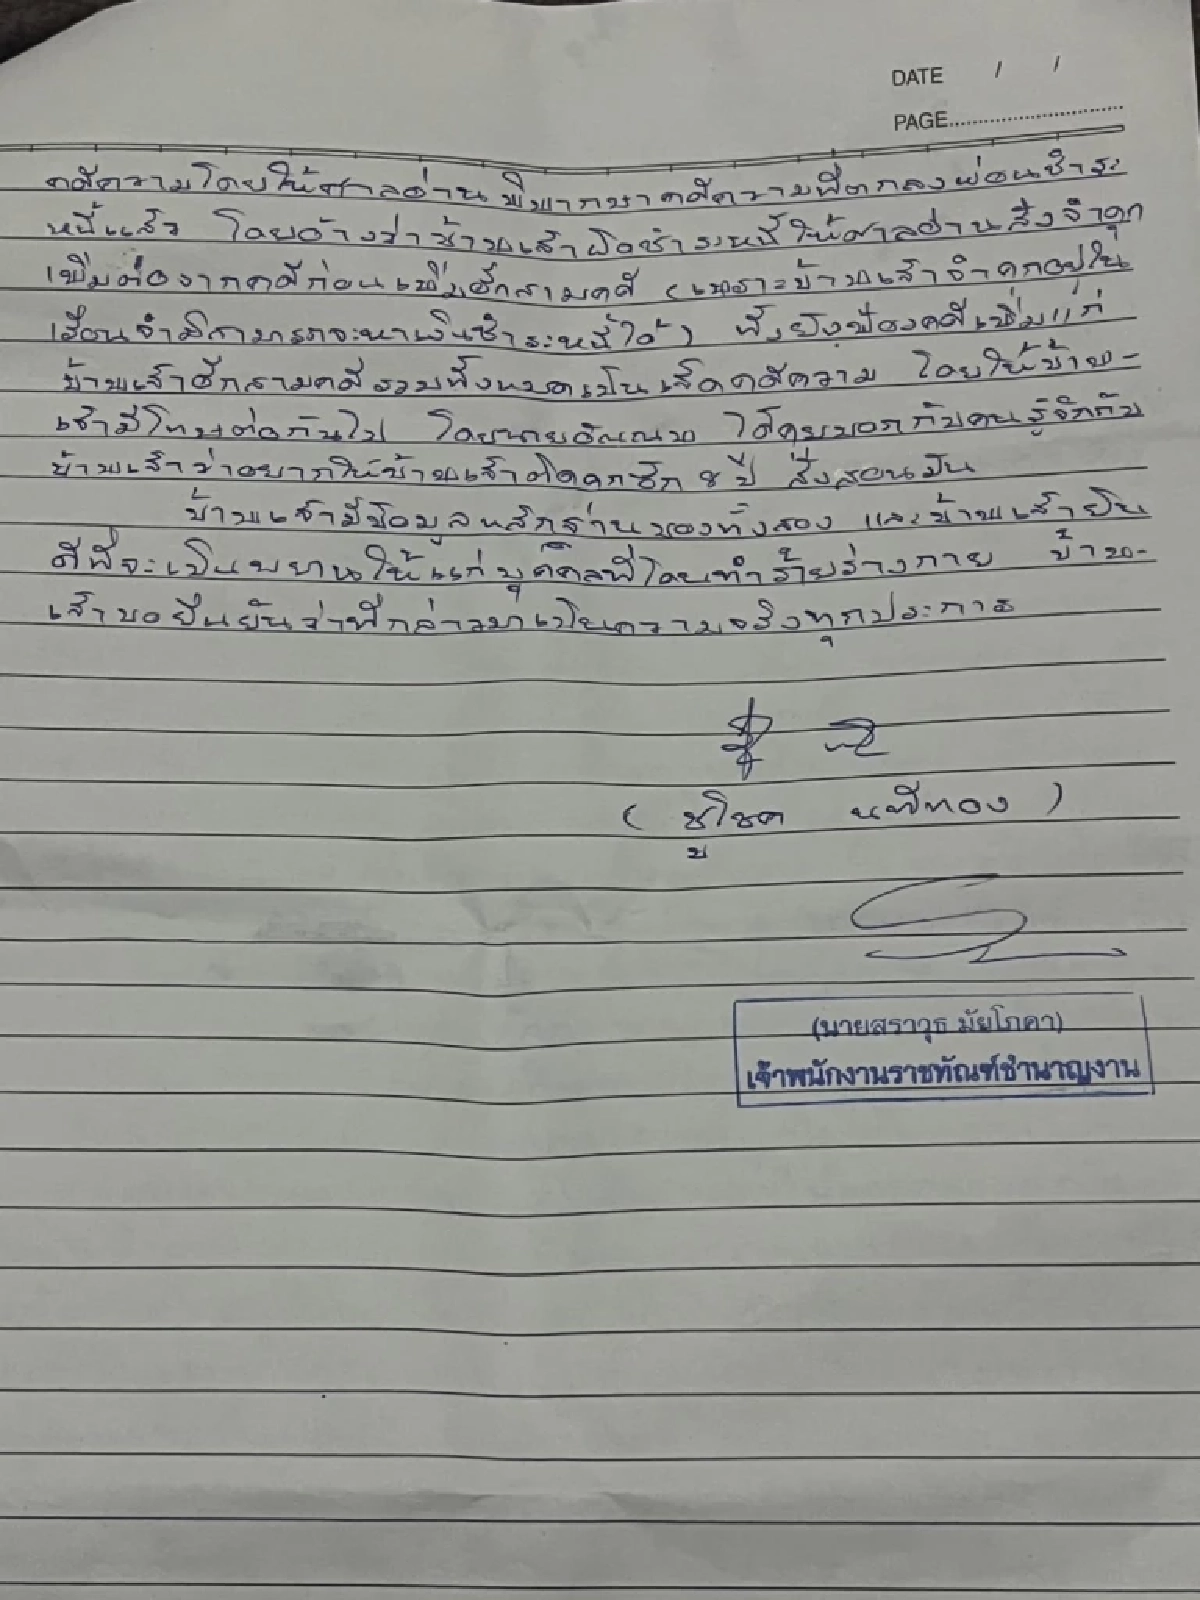 DATE / /
PAGE
คดีความโดยให้ศาลอ่านพิพากษาคดีความที่ตกลงผ่อนชำระ
หนี้แล้ว โดยอ้างว่าข้าพเจ้าผิดชำระหนี้ให้ศาลอ่านสั่งจำคุก
เพิ่มต่อจากคดีก่อนเพิ่มอีกสามคดี (เพราะข้าพเจ้าจำคุกอยู่ใน
เรือนจำมิสามารถจะหาเงินชำระหนี้ได้) ทั้งยังฟ้องคดีเพิ่มแก่
ข้าพเจ้าอีกสามคดีรวมทั้งหมดเป็นเจ็ดคดีความ โดยให้ข้าพ-
เจ้ามีโทษต่อกันไป โดยนาย ได้คุยบอกกับคนรู้จักกับ
ข้าพเจ้าว่าอยากให้ข้าพเจ้าติดคุกซัก 8 ปี สั่งสอนมัน
ข้าพเจ้ามีข้อมูลหลักฐานของทั้งสอง และข้าพเจ้ายิน
ดีที่จะเป็นพยานให้แก่บุคคลที่โดนทำร้ายร่างกาย ข้าพ-
เจ้าขอยืนยันว่าที่กล่าวมาเป็นความจริงทุกประการ
( ชูโชค นทีทอง )
(นายสราวุธ มัยโภคา)
เจ้าพนักงานราชทัณฑ์ชำนาญงาน